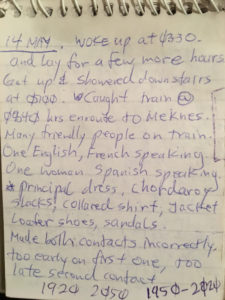 14 MAY. WOKE UP at 0330.
and lay for a few more hours
Get up & Showered downstairs
at 0700. Caught train @
0840 hrs enroute to Meknes.
Many friendly people on train.
One English, French speaking.
One woman Spanish speaking.
* principal dress, chordaroy
slacks, collared shirt, jacket
loafer shoes, sandals.
Made both contacts incorrectly.
too early on first one, too
late second contact
1920 2050 1950-2020